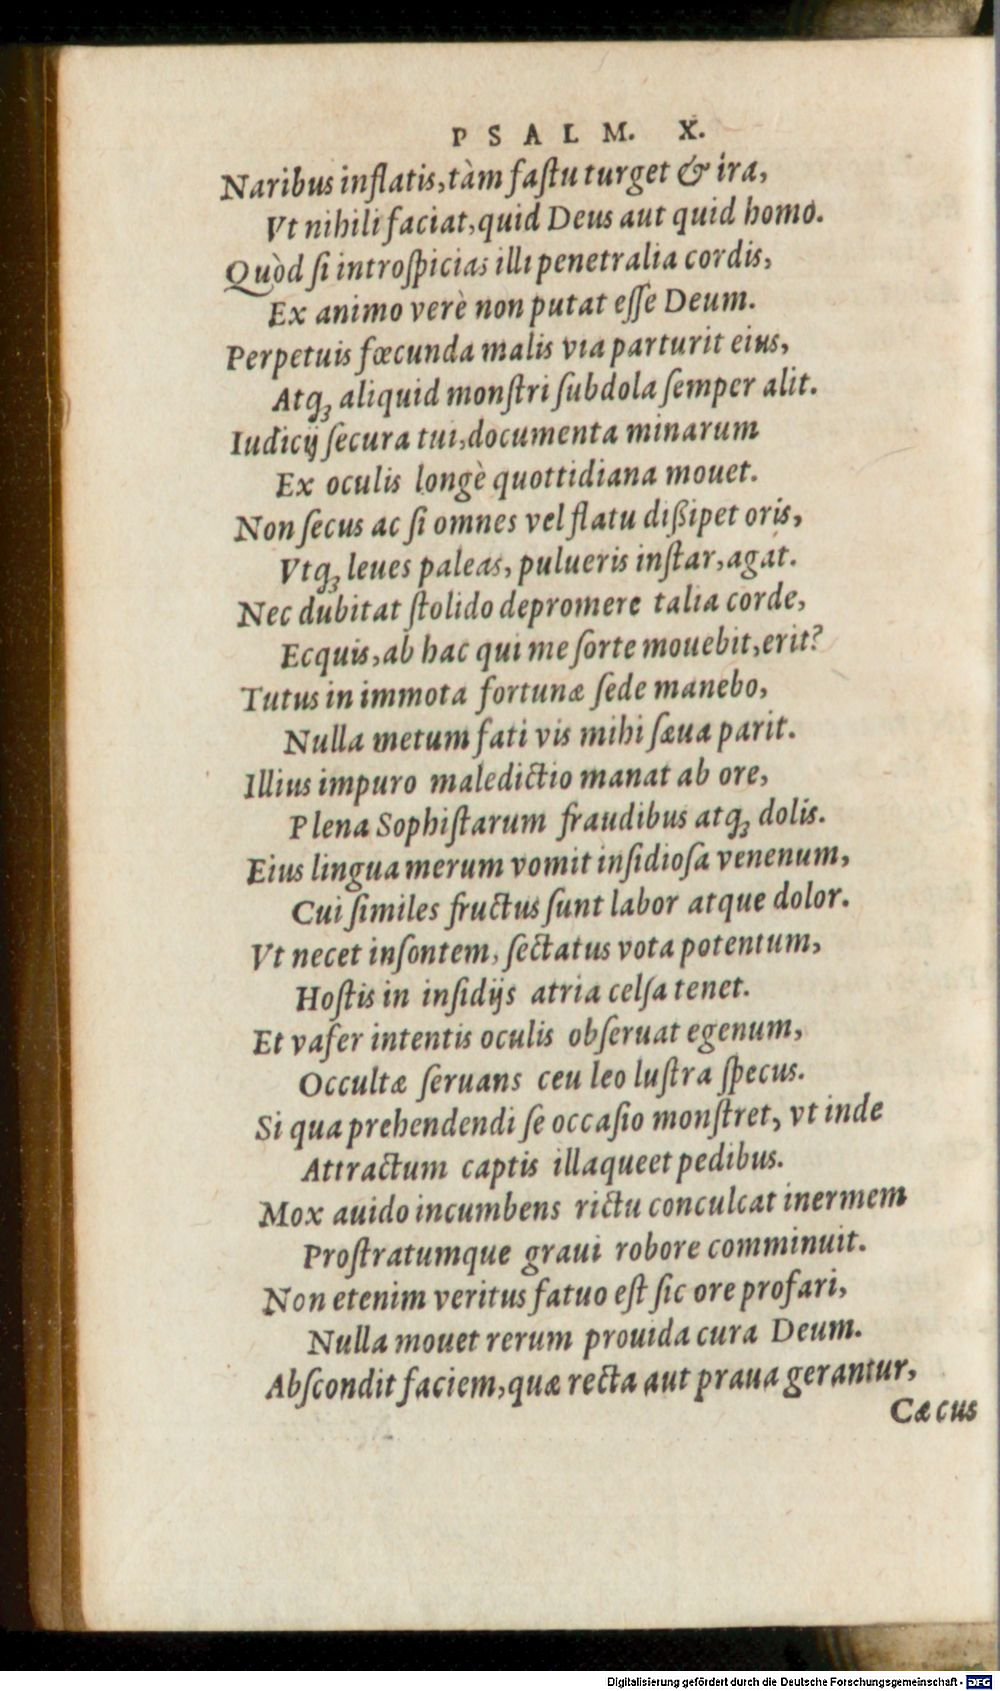 PSALM. X.
Naribus inflatis, tàm faſtu turget & ira,
Vt nihili faciat, quid Deus aut quid homo.
Quòd ſi introſpicias illi penetralia cordis,
Ex animo verè non putat eſſe Deum.
Perpetuis fœcunda malis via parturit eius,
Atqꝫ aliquid monſtri ſubdola ſemper alit.
Iudicij ſecura tui, documenta minarum
Ex oculis longè quottidiana mouet.
Non ſecus ac ſi omnes vel flatu dißipet oris,
Vtqꝫ leues paleas, pulueris inſtar, agat.
Nec dubitat ſtolido depromere talia corde,
Ecquis, ab hac qui me ſorte mouebit, erit?
Tutus in immota fortunæ ſede manebo,
Nulla metum fati vis mihi ſæua parit.
Illius impuro maledictio manat ab ore,
Plena Sophiſtarum fraudibus atqꝫ dolis.
Eius lingua merum vomit inſidioſa venenum,
Cui ſimiles fructus ſunt labor atque dolor.
Vt necet inſontem, ſectatus vota potentum,
Hoſtis in inſidijs atria celſa tenet.
Et vafer intentis oculis obſeruat egenum,
Occultæ ſeruans ceu leo luſtra ſpecus.
Si qua prehendendi ſe occaſio monſtret, vt inde
Attractum captis illaqueet pedibus.
Mox auido incumbens rictu conculcat inermem
Proſtratumque graui robore comminuit.
Non etenim veritus fatuo eſt ſic ore profari,
Nulla mouet rerum prouida cura Deum.
Abſcondit faciem, quæ recta aut praua gerantur,
Cæcus
Digitalisierung gefördert durch die Deutsche Forschungsgemeinschaft - DFG